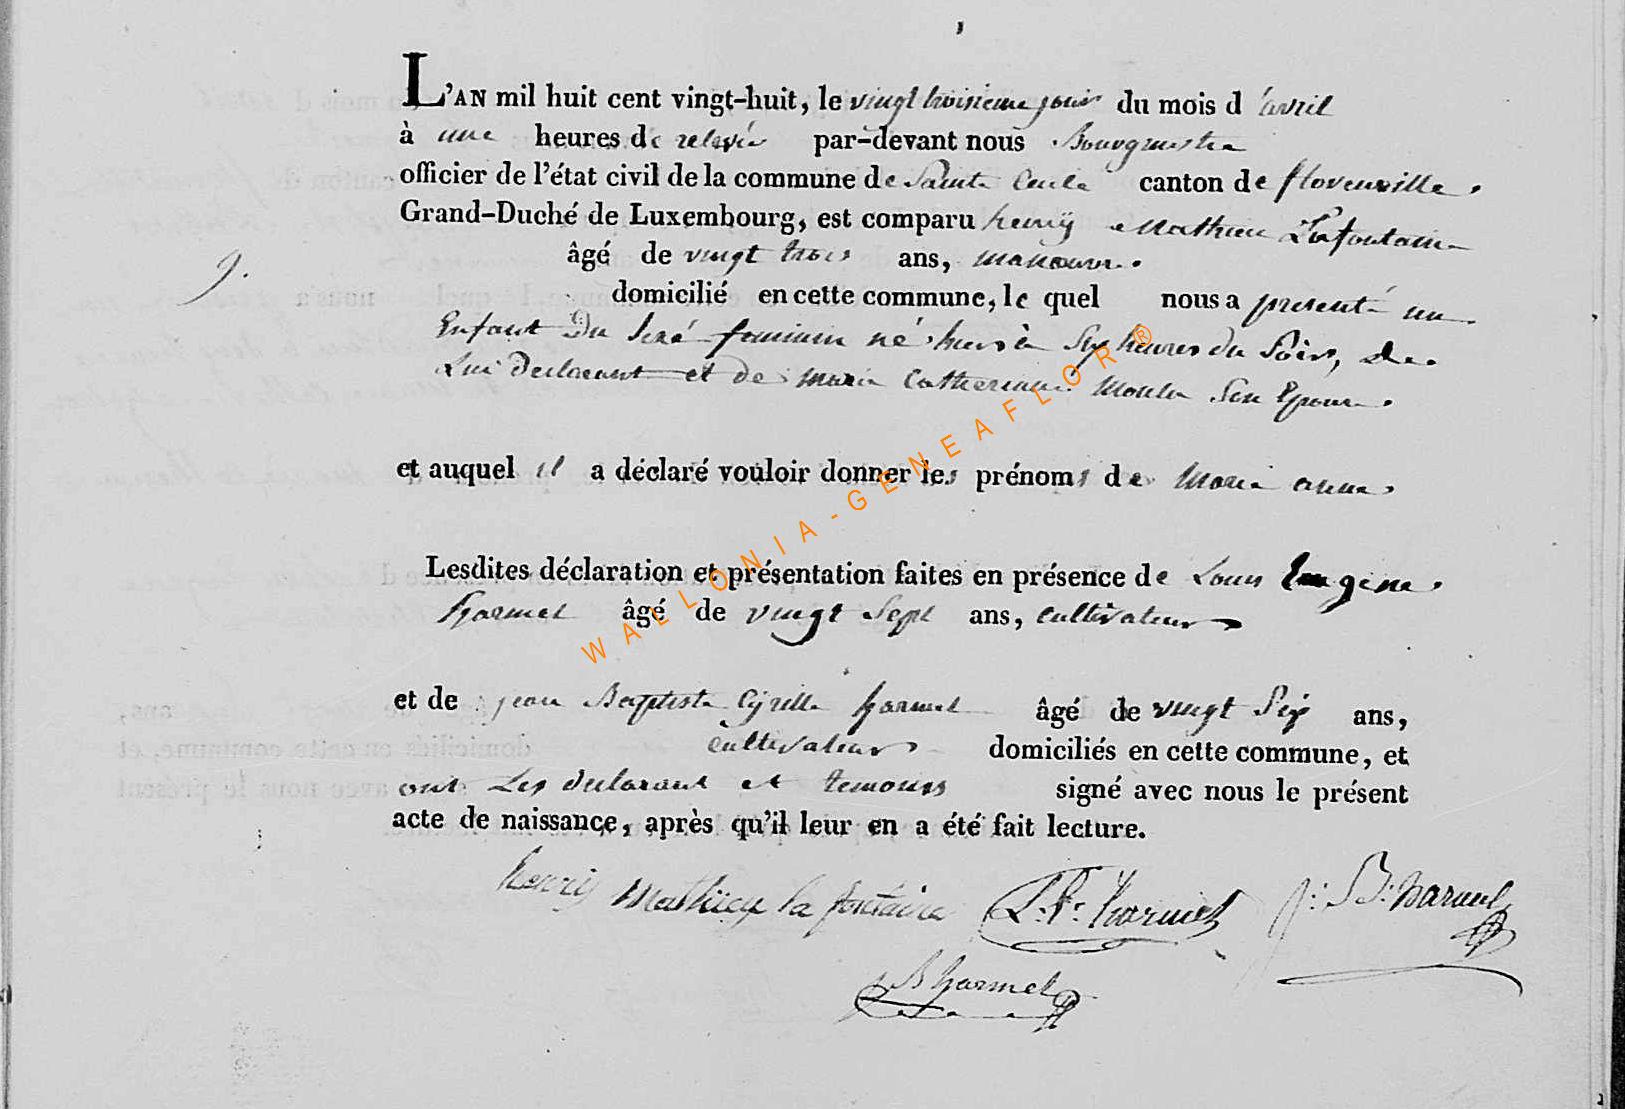 L'AN mil huit cent vingt-huit, le vingt troisieme jour du mois d'avril
à une heures de relevée par-devant nous Bourgmestre
officier de l'état civil de la commune de Sainte Cecile canton de florenville.
Grand-Duché de Luxembourg, est comparu henrÿ Mathieu Lafontaine
âgé de vingt trois ans, manouvre.
9.
domicilié en cette commune, le quel nous a presenté un
Enfant Du Sexé feminin né hier à Six heures du Soir, de
Lui Declarant et de maria Catherinne Moulu Son Epouse.
et auquel il a déclaré vouloir donner les prénoms de Maria anna,
Lesdites déclaration et présentation faites en présence de Louis Eugene
harmel âgé de vingt Sept ans, Cultivateur
et de jean Baptiste Cÿrille harmel âgé de vingt Six ans,
cultivateur domiciliés en cette commune, et
ont Les declarant et temoins signé avec nous le présent
acte de naissance, après qu'il leur en a été fait lecture.
henriÿ Mathieu la fontaine L. E. harmel j: B: harmel
B harmel
WALLONIA-GENEAFLOR®